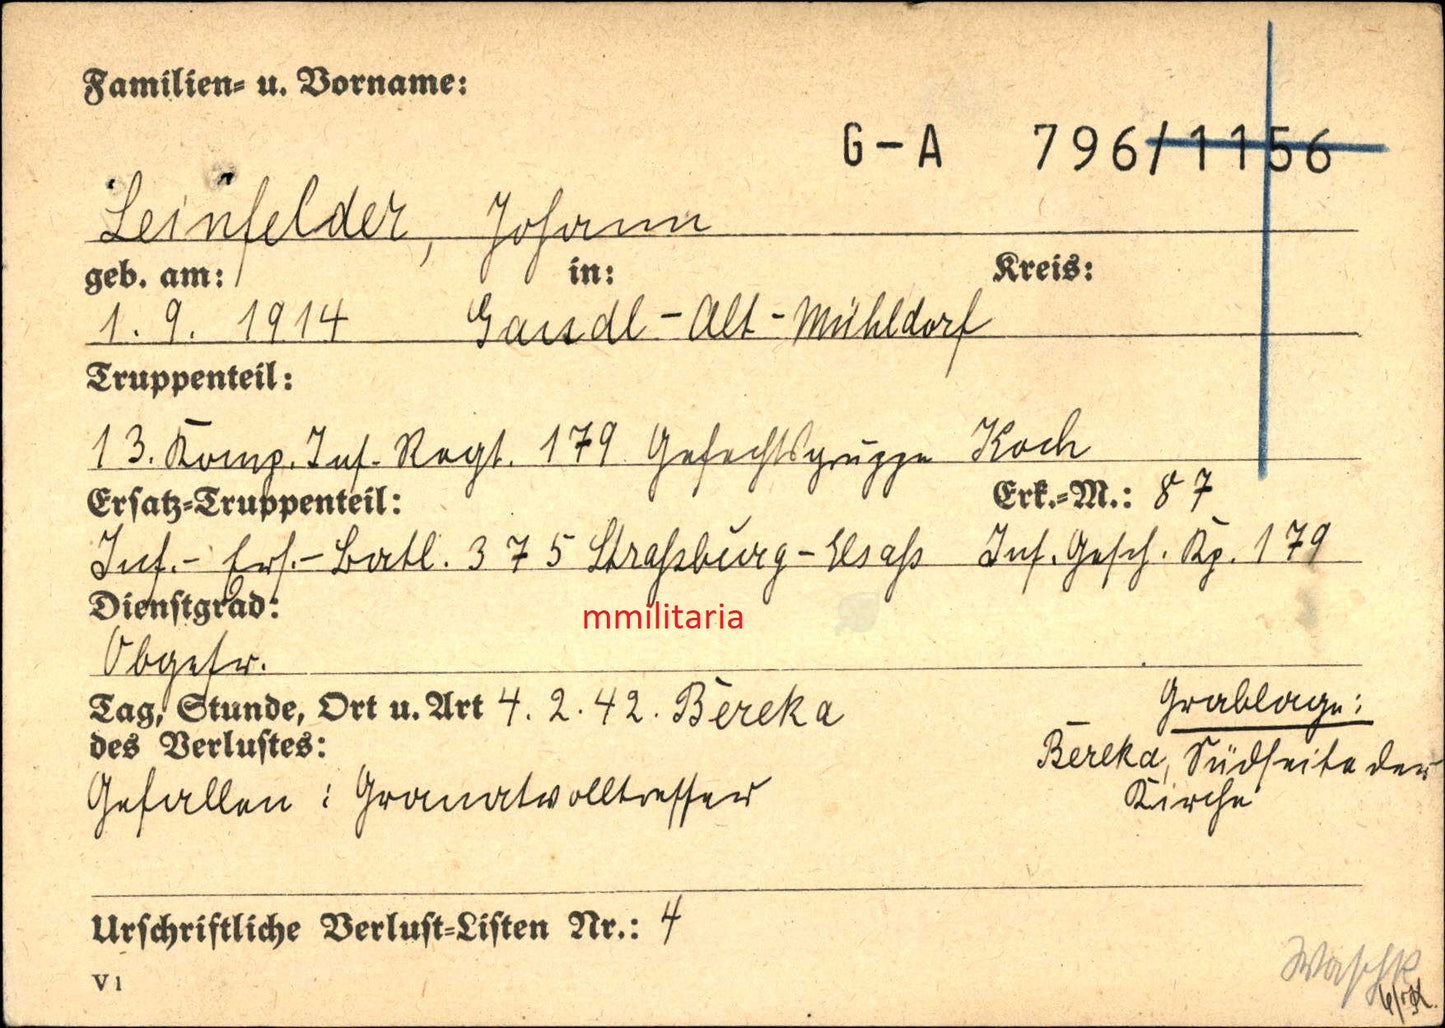 Familien- u. Vorname:
G-A 796/1156
Leinfelder, Johann
geb. am: in: Kreis:
1. 9. 1914 Gaudl-Alt-Mühldorf
Truppenteil:
13. Komp. Inf. Regt. 179 Gefechtsgruppe Koch
Ersatz-Truppenteil: Erk.-M.: 87
Inf.- Ers.- Batl. 375 Straßburg-Elsaß Inf. Gesch. Kp. 179
Dienstgrad:
mmilitaria
Obgefr.
Tag, Stunde, Ort u. Art 4. 2. 42. Bereka Grablage:
des Verlustes: Bereka, Südseite der
Gefallen : Granatvolltreffer Kirche
Urschriftliche Verlust-Listen Nr.: 4
V 1